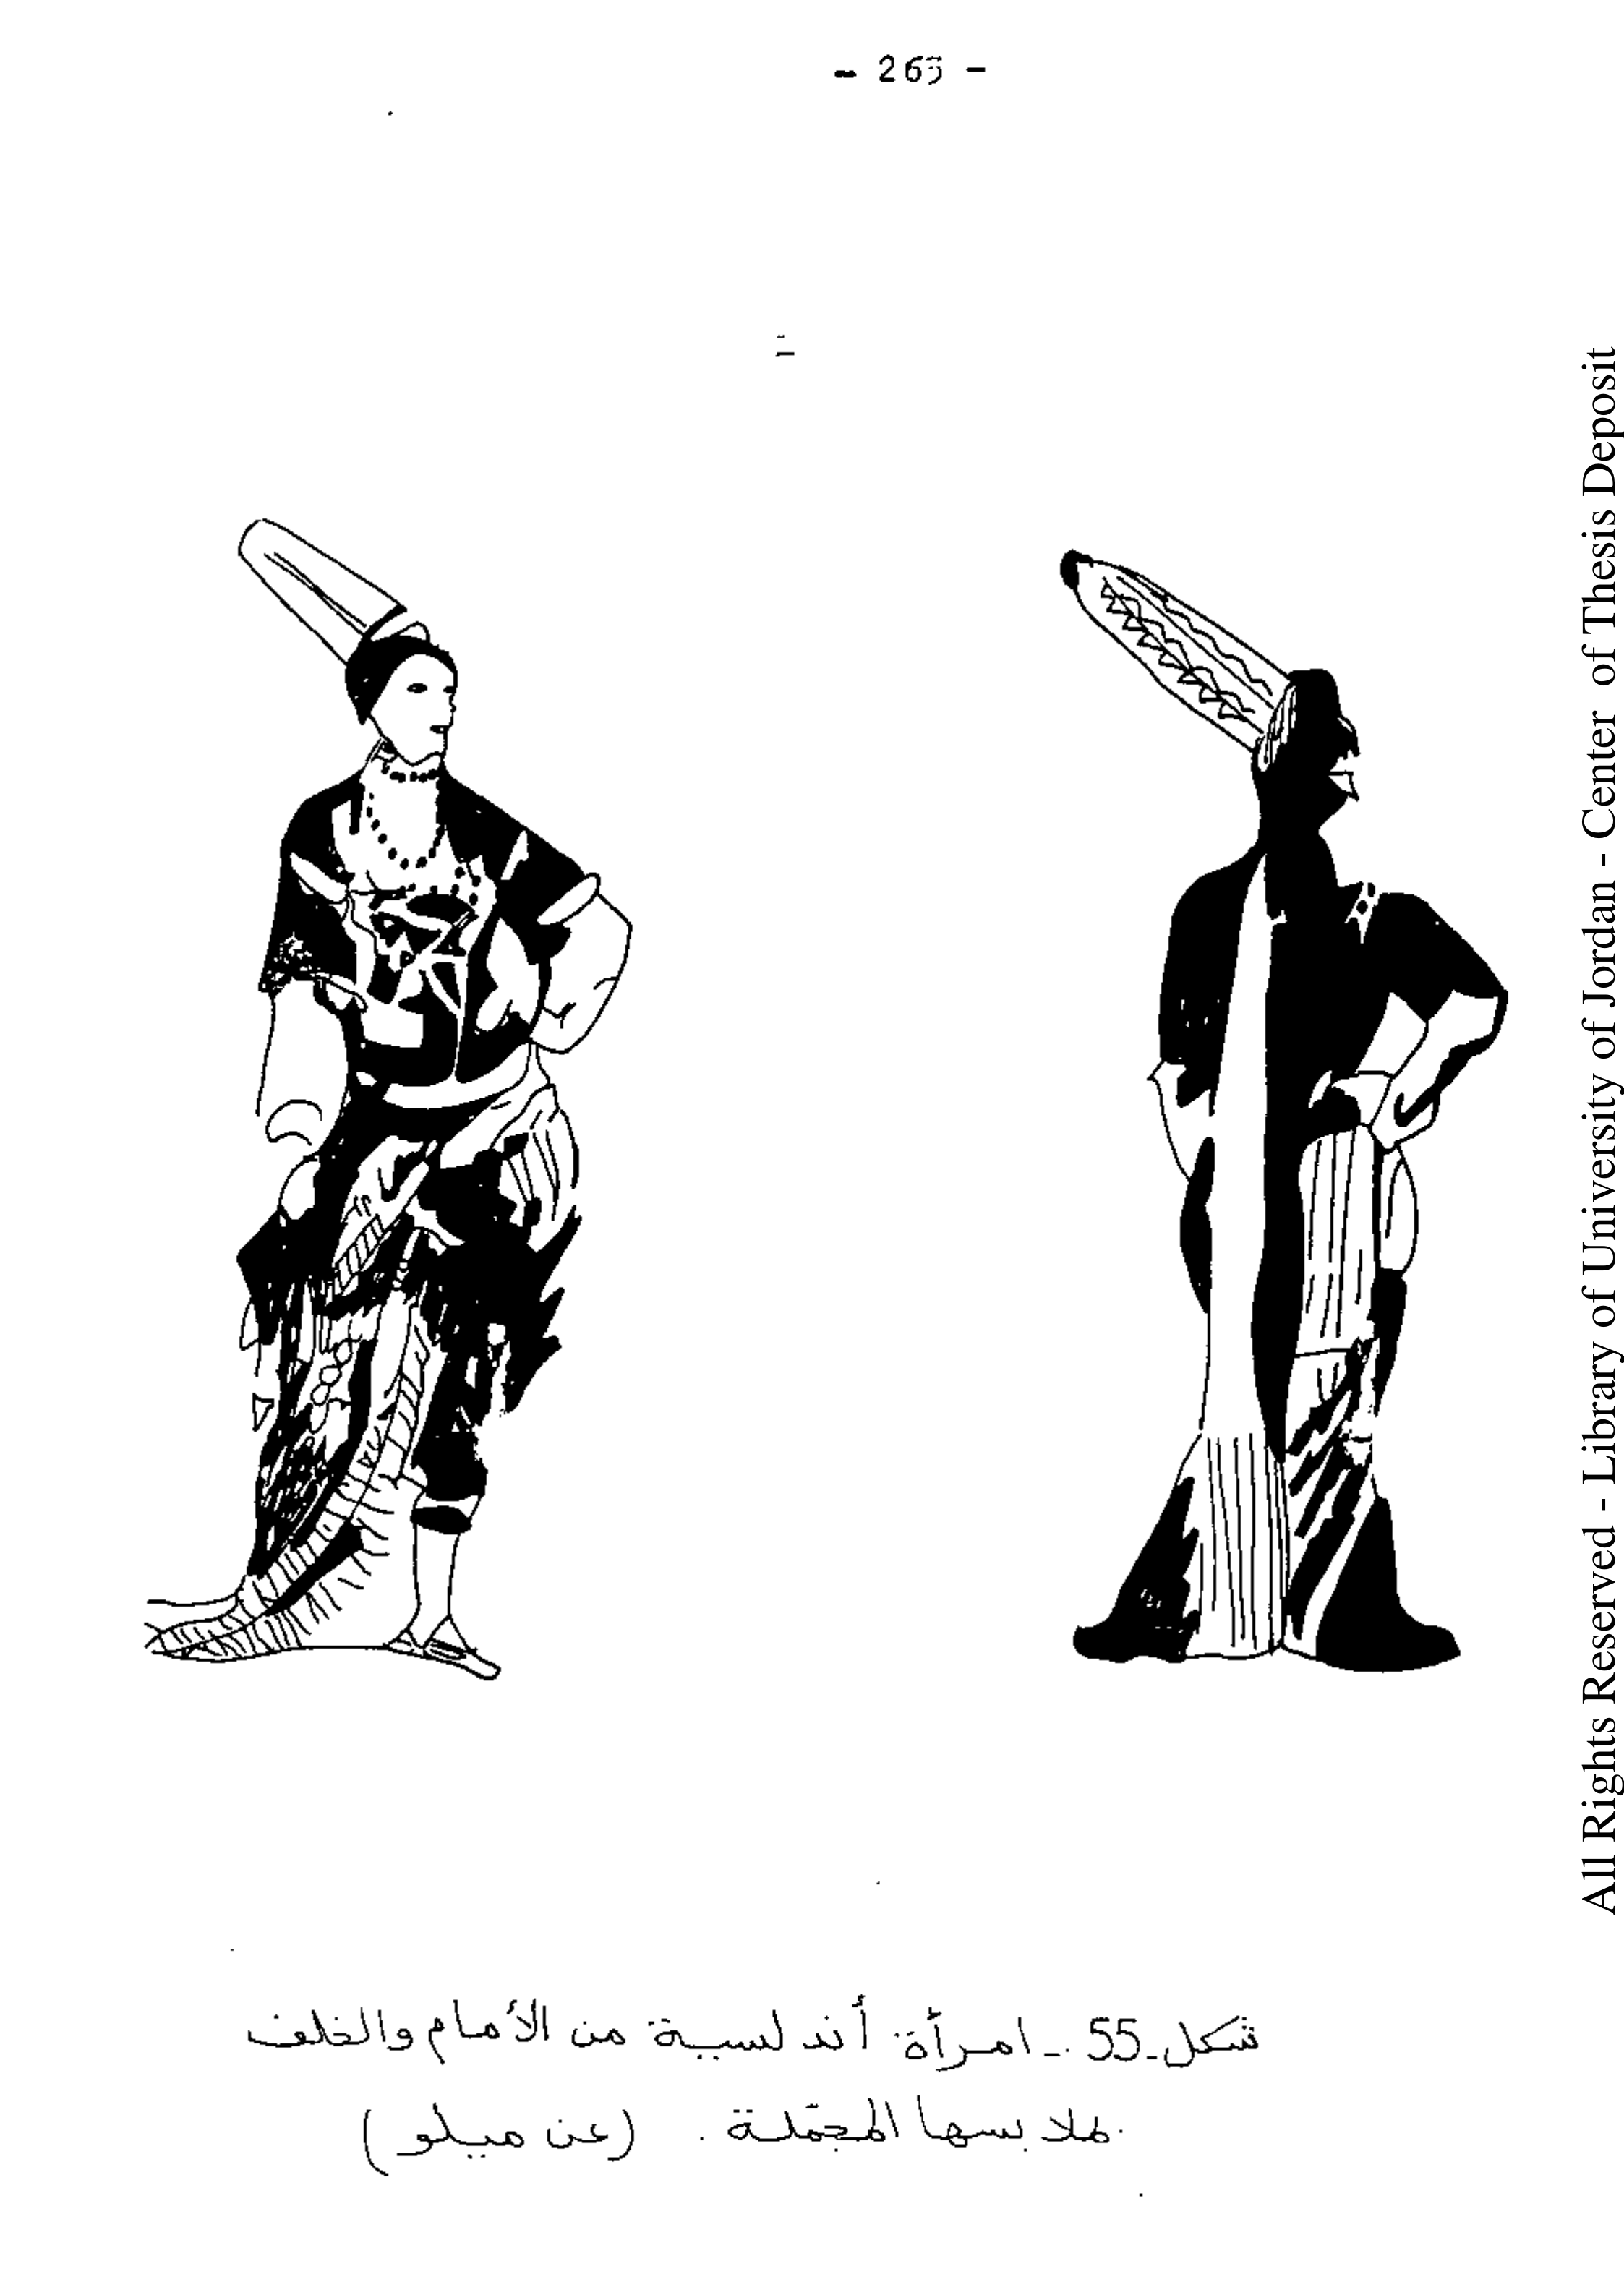 - 263 -
شكل ـ 55 ـ امرأة أندلسية من الأمام والخلف
بملابسها المجمّلة . (عن ميلو)
All Rights Reserved - Library of University of Jordan - Center of Thesis Deposit